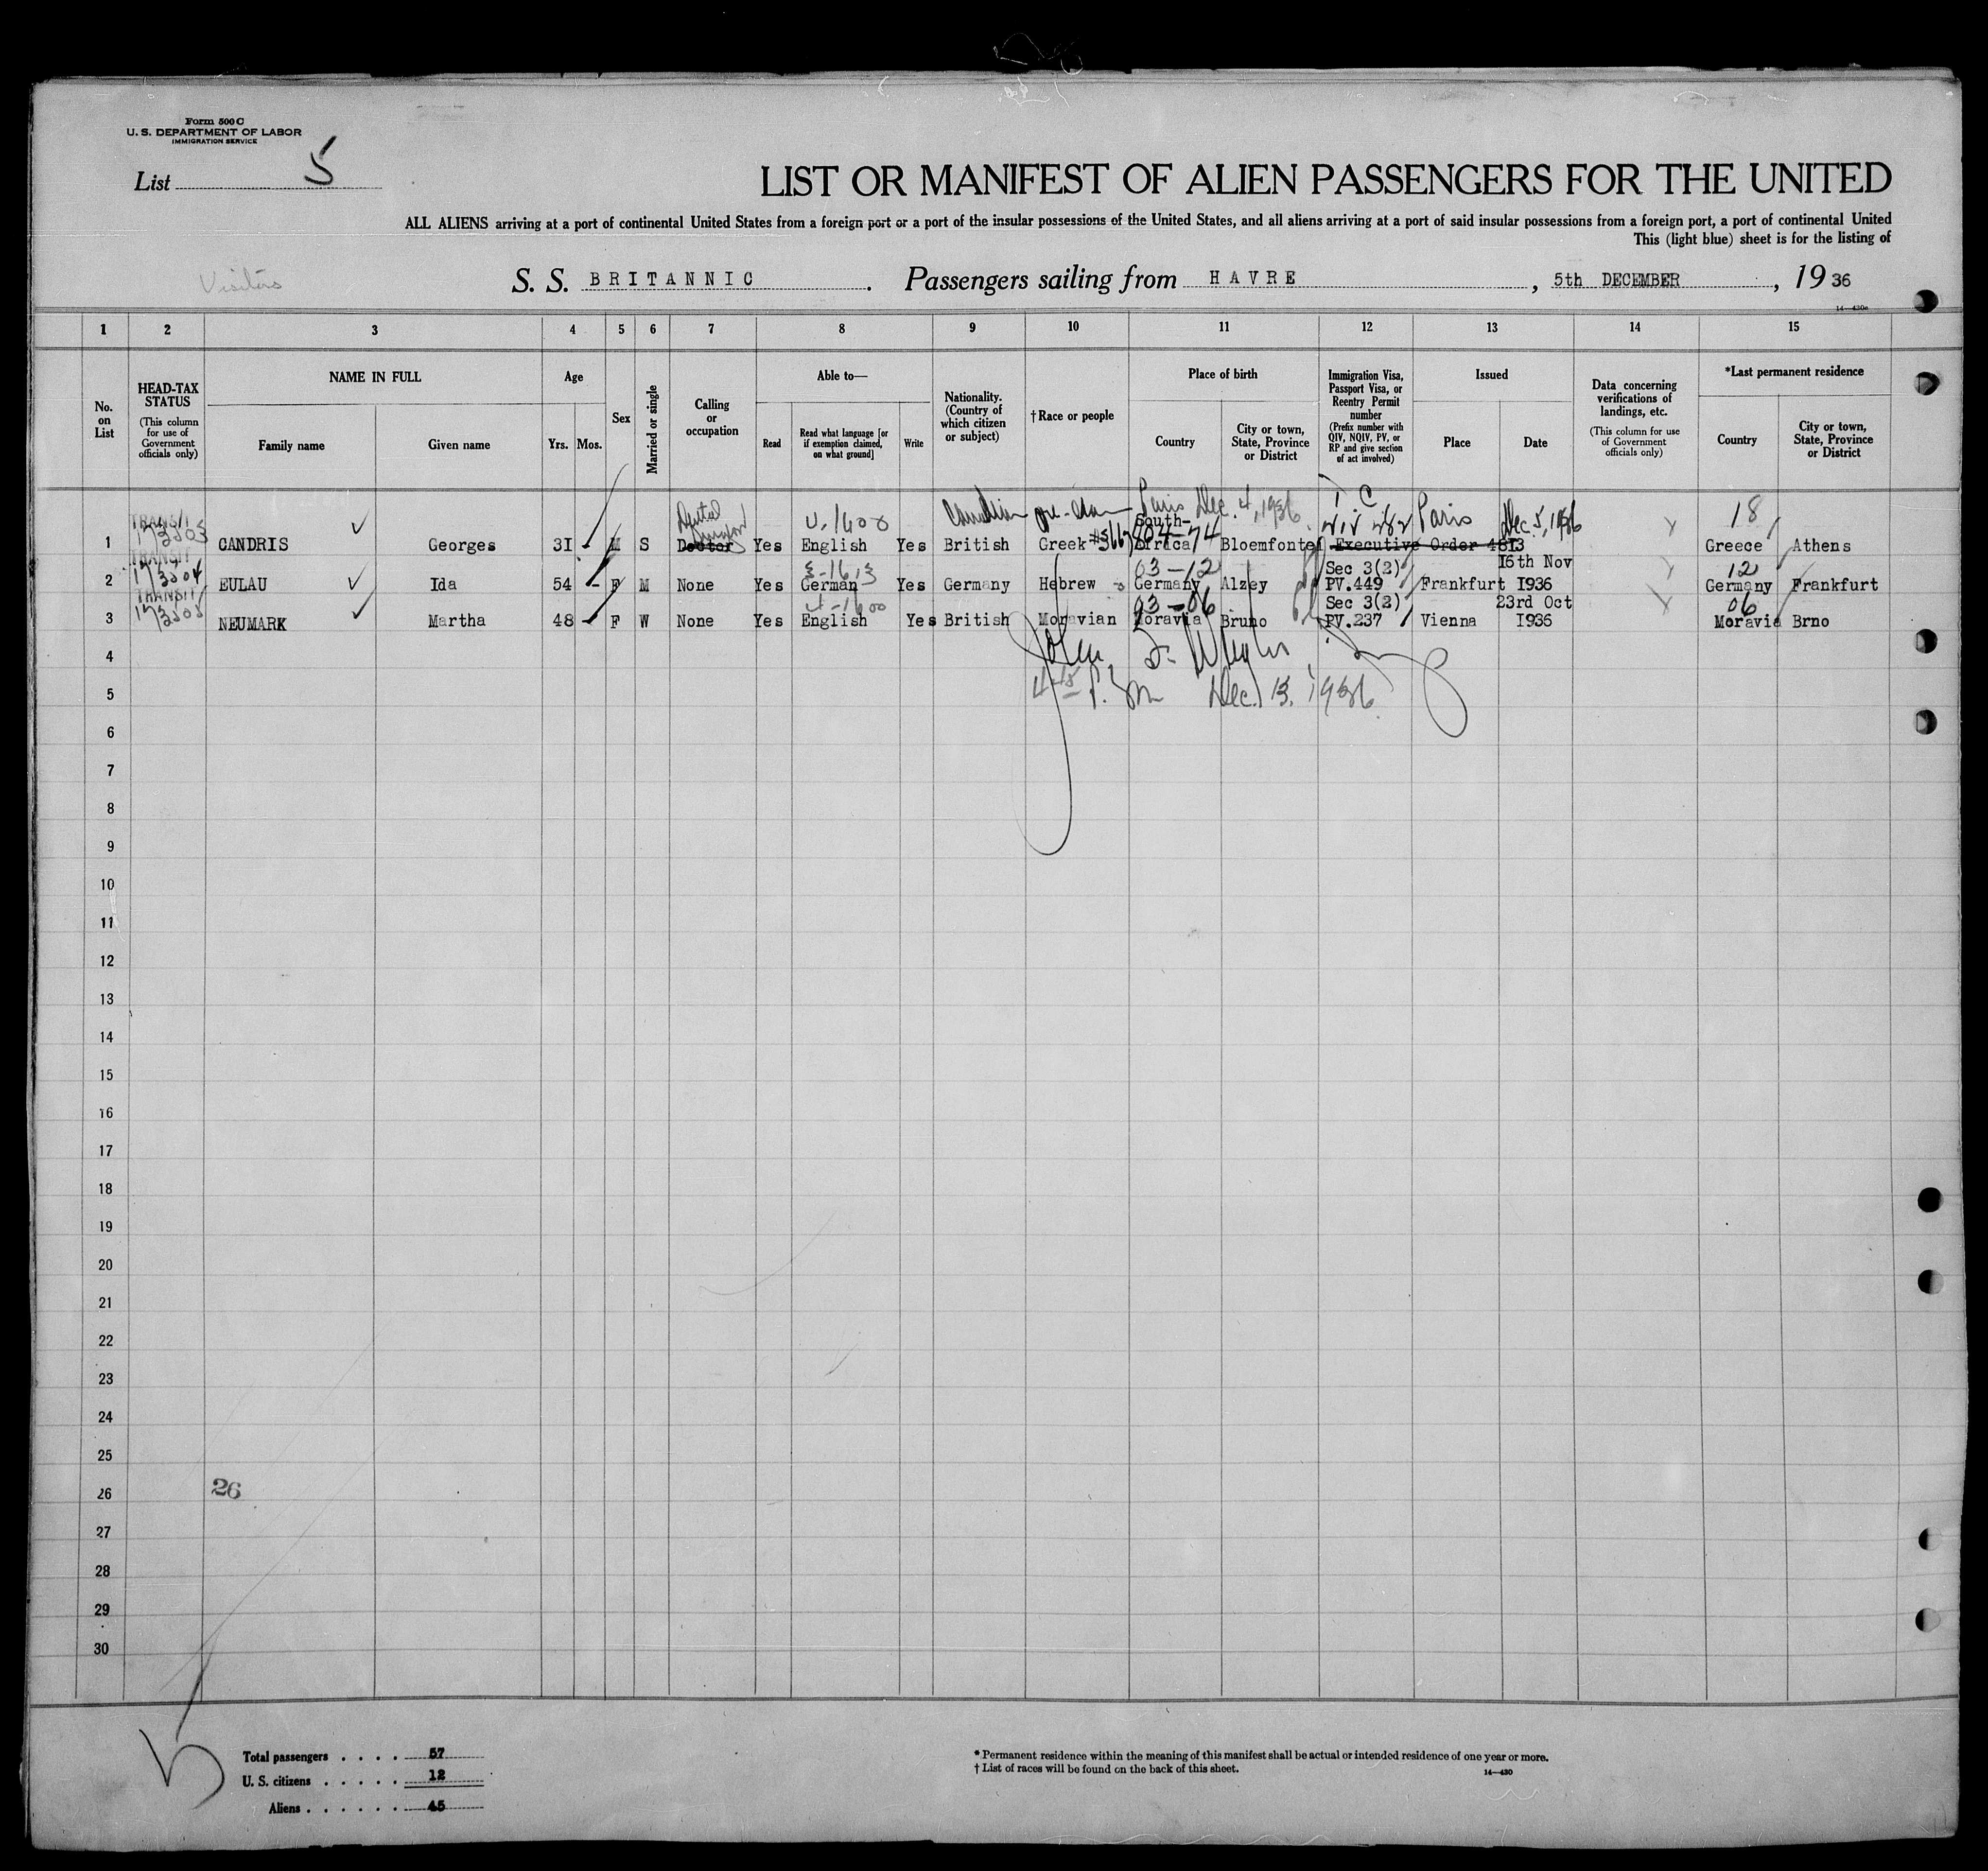 Form 500 C
U. S. DEPARTMENT OF LABOR
IMMIGRATION SERVICE
List 5
LIST OR MANIFEST OF ALIEN PASSENGERS FOR THE UNITED
ALL ALIENS arriving at a port of continental United States from a foreign port or a port of the insular possessions of the United States, and all aliens arriving at a port of said insular possessions from a foreign port, a port of continental United
This (light blue) sheet is for the listing of
Visitors
S. S. BRITANNIC. Passengers sailing from HAVRE, 5th DECEMBER, 19 36
14—430a
1 2 3 4 5 6 7 8 9 10 11 12 13 14 15
No. on List
HEAD-TAX STATUS (This column for use of Government officials only)
NAME IN FULL
Family name
Given name
Age
Yrs. Mos.
Sex
Married or single
Calling or occupation
Able to—
Read
Read what language [or if exemption claimed, on what ground]
Write
Nationality. (Country of which citizen or subject)
†Race or people
Place of birth
Country
City or town, State, Province or District
Immigration Visa, Passport Visa, or Reentry Permit number (Prefix number with QIV, NQIV, PV, or RP and give section of act involved)
Issued
Place
Date
Data concerning verifications of landings, etc. (This column for use of Government officials only)
*Last permanent residence
Country
City or town, State, Province or District
TRANSIT Dental Canadian Paris Dec. 4, 1936 Paris Dec. 5, 1936 18
1 CANDRIS Georges 3I - M S Doctor Yes English Yes British Greek South-Africa Bloemfontef Executive Order 48I3 Greece Athens
TRANSIT 03-12 Sec 3(2) 16th Nov 12
2 EULAU Ida 54 - F M None Yes German Yes Germany Hebrew Germany Alzey PV.449 Frankfurt I936 Germany Frankfurt
TRANSIT 03-06 Sec 3(2) 23rd Oct 06
3 NEUMARK Martha 48 F W None Yes English Yes British Moravian Moravia Bruno PV.237 Vienna I936 Moravia Brno
4
5 P.M Dec. 13, 1936
6
7
8
9
10
11
12
13
14
15
16
17
18
19
20
21
22
23
24
25
26 26
27
28
29
30
Total passengers . . . . 57
U. S. citizens . . . . . 12
Aliens . . . . . . 45
* Permanent residence within the meaning of this manifest shall be actual or intended residence of one year or more.
† List of races will be found on the back of this sheet.
14—430